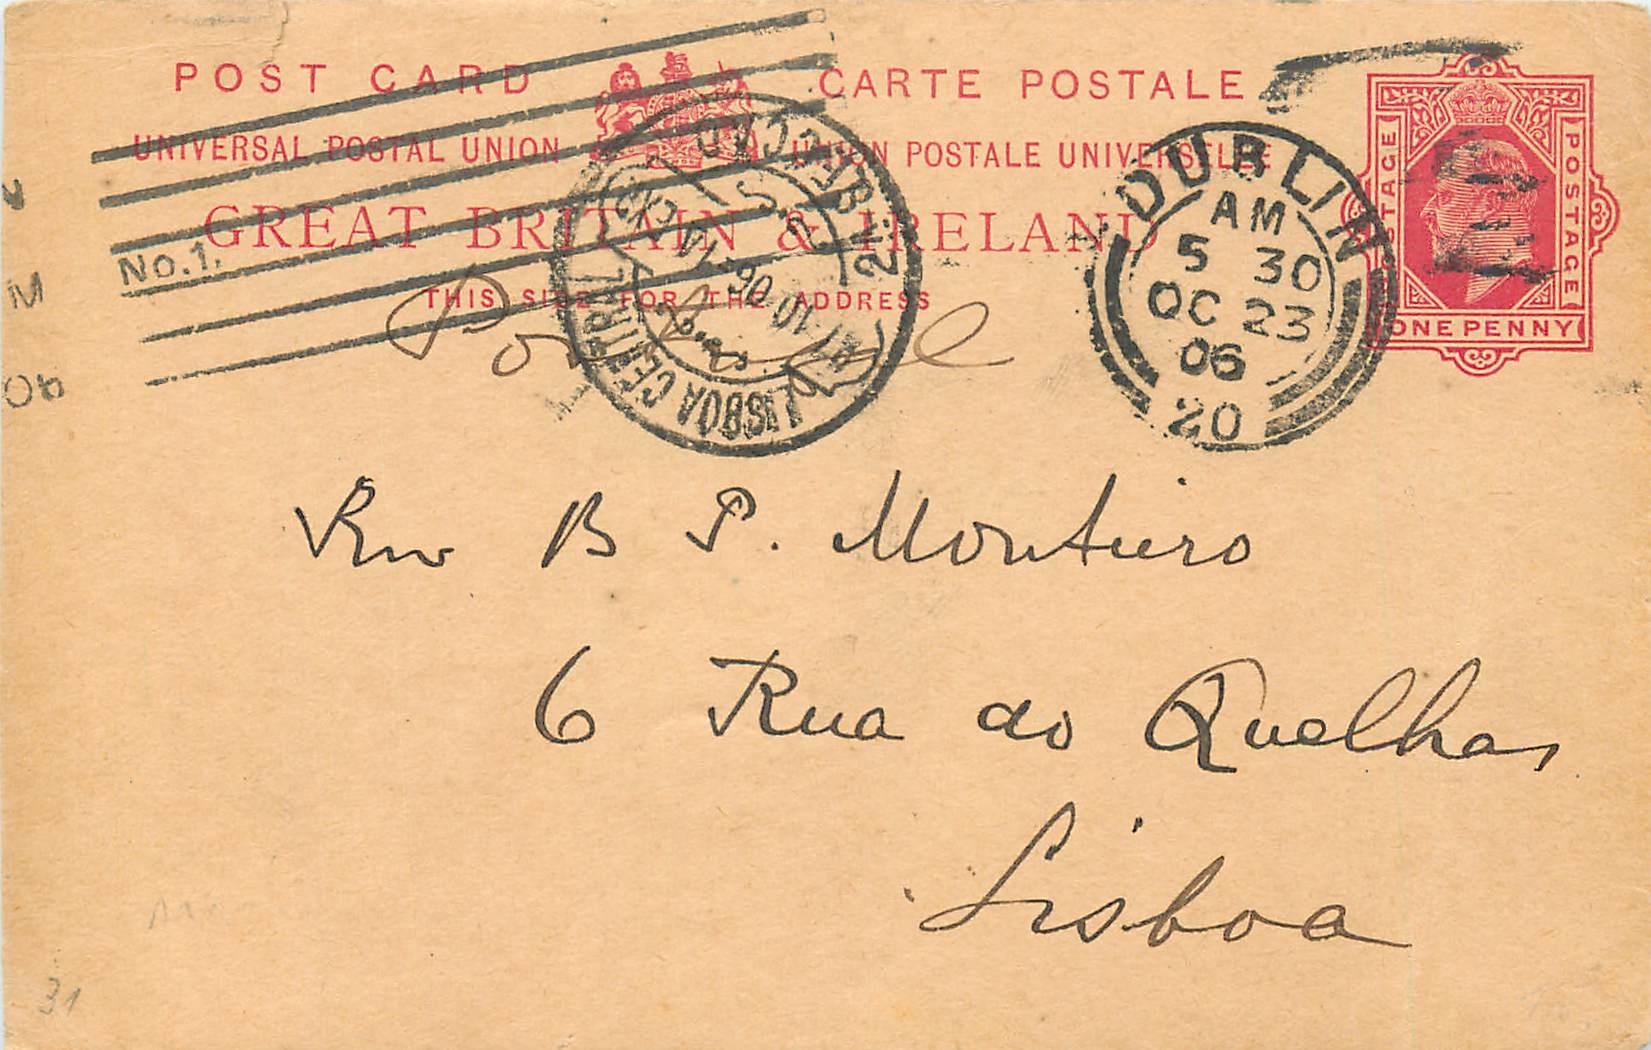 POST CARD CARTE POSTALE
UNIVERSAL POSTAL UNION UNION POSTALE UNIVERSELLE
GREAT BRITAIN & IRELAND
THIS SIDE FOR THE ADDRESS
POSTAGE POSTAGE
ONE PENNY
No.1.
DUBLIN
AM
5 30
OC 23
06
20
LISBOA CENTRAL
2ª SECCÃO
Rev B P. Monteiro
6 Rua do Quelhas
Lisboa
31